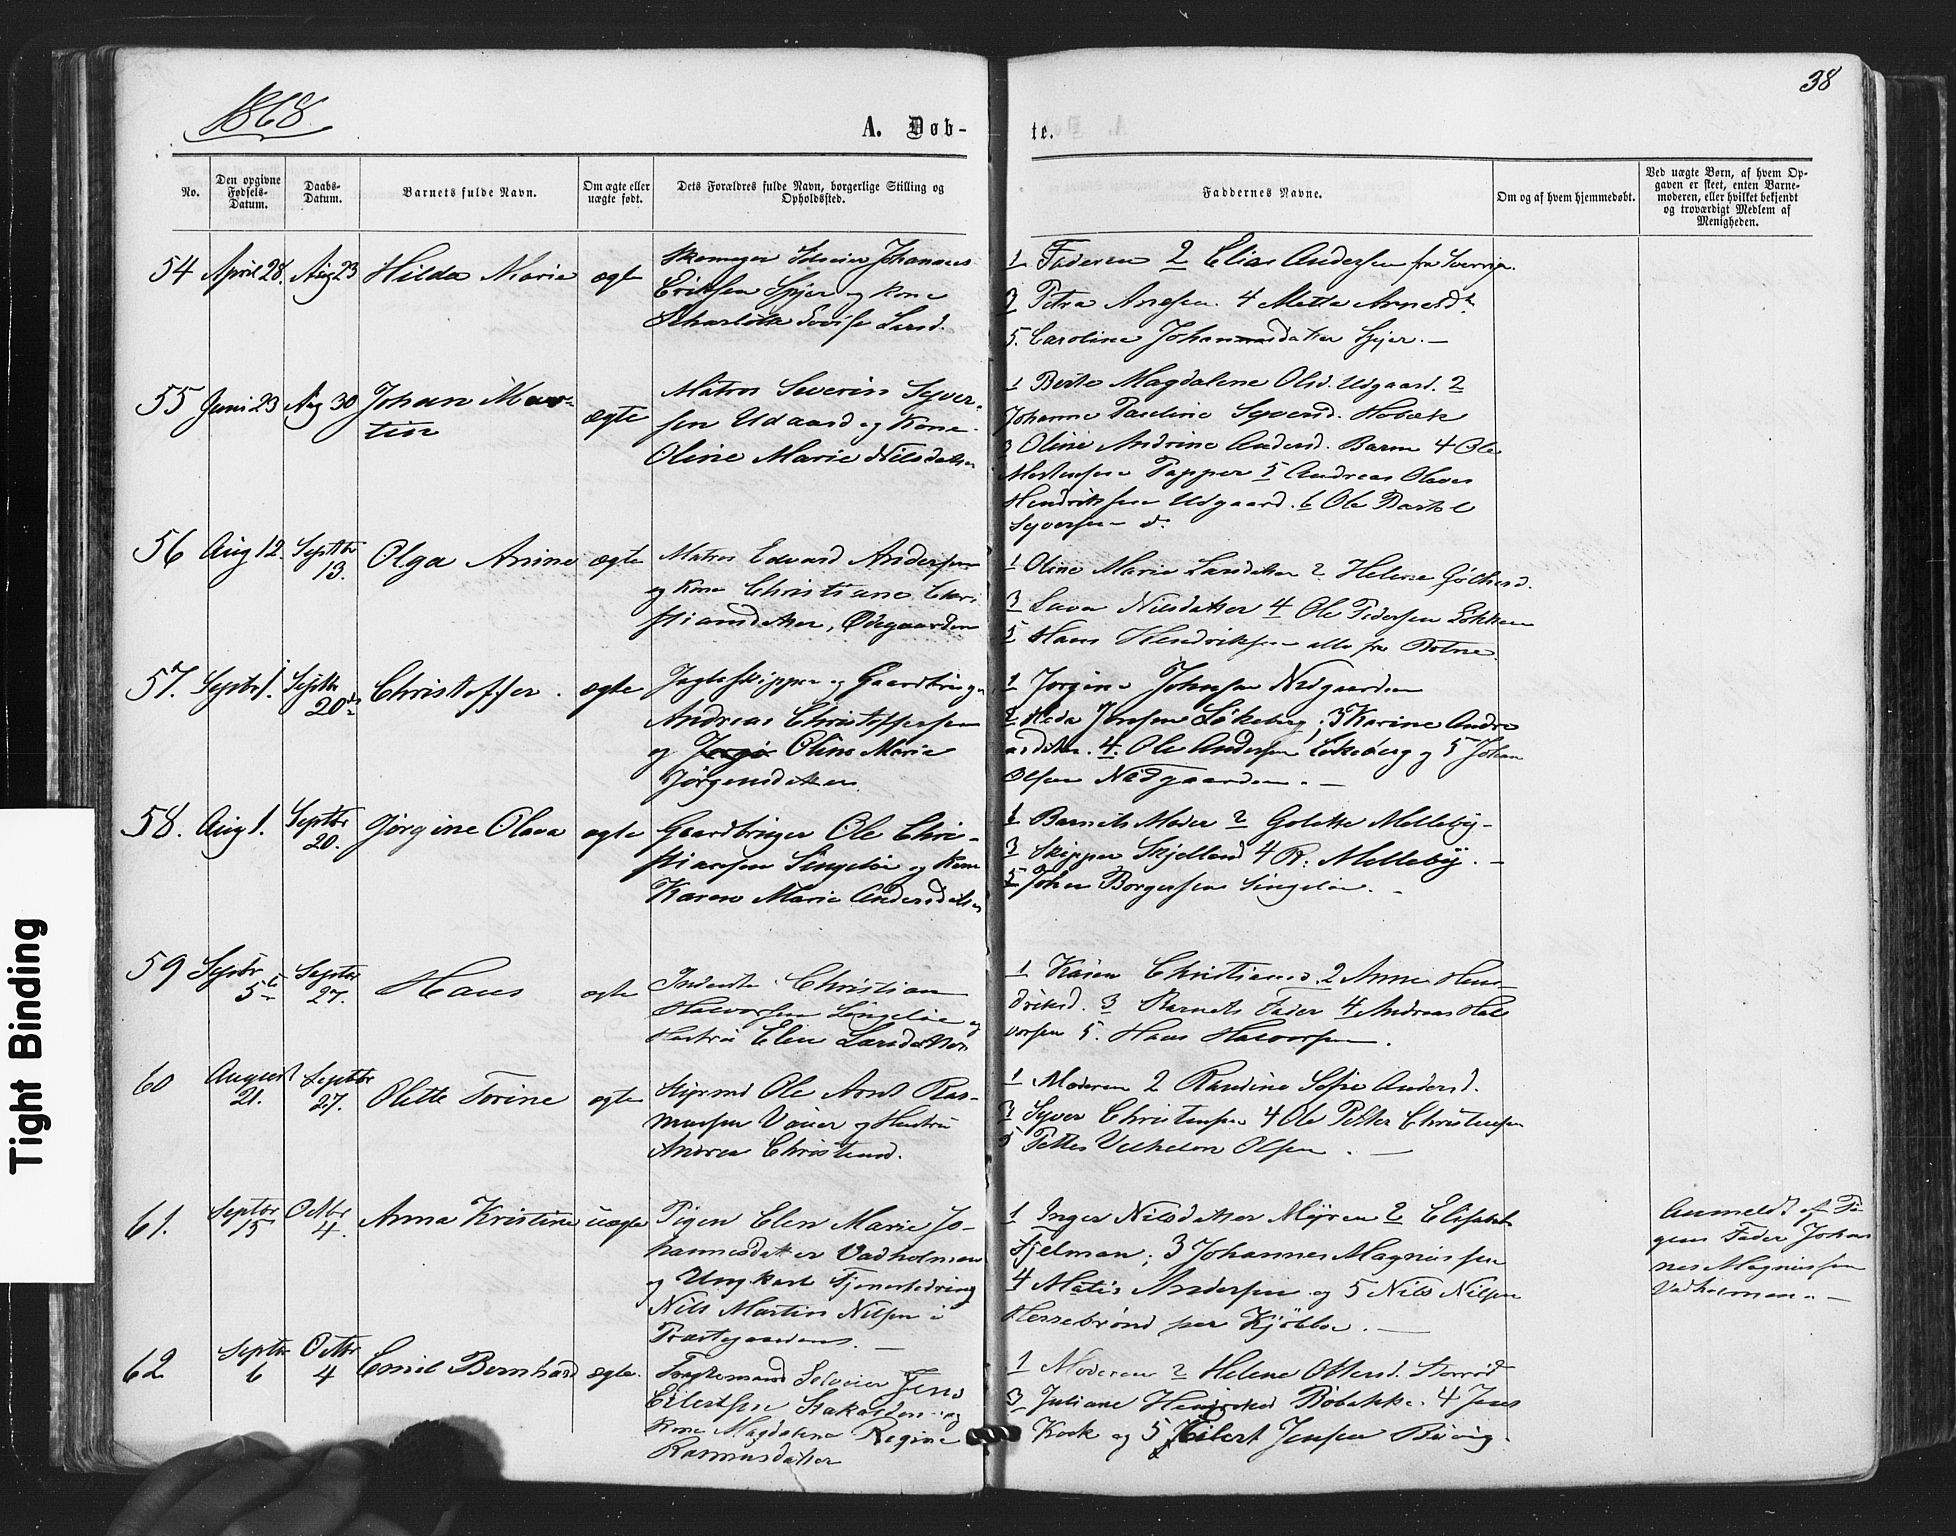 1868.
38
A. Døb-
te.
No.
Den opgivne Fødsels-Datum.
Daabs-Datum.
Barnets fulde Navn.
Om ægte eller uægte født.
Dets Forældres fulde Navn, borgerlige Stilling og Opholdssted.
Faddernes Navne.
Om og af hvem hjemmedøbt.
Ved uægte Børn, af hvem Op-
gaven er skeet, enten Barne-
moderen, eller hvilket bekjendt
og troværdigt Medlem af
Menigheden.
54 April 28. Aug 23 Hilda Marie ægte
Skomager Johannes
Eriksen og Kone
Lovise Larsd.
1 Faderen 2 Elias Andersen fra Sverrig.
3 Petra 4 Mette Arnesdr
5. Caroline Johannesdatter
55 Juni 23 Aug 30 Johan Mar-
tin
ægte
Matros Severin Syver-
sen Udgaard og Kone
Oline Marie Nilsdatter
1 Berte Magdalene Olsd. Udgaard. 2
Johanne Pauline Syversd.
3 Oline Andrine Andersd. 4 Ole
Mortensen Tapper 5 Andreas Olaves
Hendriksen Udgaard. 6 Ole
Syversen do
56 Aug 12. Septbr 13. Olga Anine ægte
Matros Edvard Andersen
og Kone Christiane Chri-
stiansdatter, Ødegaarden
1 Oline Marie Larsdatter 2 Helene
3 Nilsdatter 4 Ole Pedersen Løkken
5 Hans Hendriksen alle fra Botne.
57. Septbr 1. Septbr 20de Christoffer. ægte
Jagteskipper og Gaardbruger
Andreas Christoffersen
og Oline Marie
Jørgensdatter.
1 Jorgine Johnsen Nedgaarden
2 Jensen Løkeberg; 3 Karine Andre
asdatter. 4. Ole Andersen Løkeberg og 5 Johan
Olsen Nedgaarden. —
58. Aug 1. Septbr 20. Jørgine Olava ægte
Gaardbruger Ole Chri-
stiansen Singeløe og Kone
Karen Marie Andersdatter
1 Barnets Moder 2 Golette Mellebÿ-
3 Skipper Skjelland 4 R: Mellebÿ. -
5 Johan Borgersen Singeløe. -
59 Septbr 5te Septbr 27. Hans ægte
Inderste Christian
Halvorsen Singeløe og
Hustru Elen Larsdatter
1 Karen Christiansd. 2 Anne Hen-
driksd. 3 Barnets Fader 4 Andreas Hal
vorsen 5. Hans Halvorsen.
60 August 21. Septbr 27. Olette Torine ægte
Styrmd Ole Arnt Ras-
mussen Viker og Hustru
Andrea Christensd.
1 Moderen 2 Randine Sofie Andersd.
3 Syver Christensen 4 Ole Petter Christensen
5 Petter Vilhelm Olsen. —
61. Septbr 15 Octbr 4. Anna Kristine uægte
Pigen Elen Marie Jo-
hannesdatter Vadholmen
og Ungkarl Tjenestedreng
Nils Martin Nilsen i
Præstegaarden. —
1 Inger Nilsdatter Myren 2 Elisabet
Fjelman; 3 Johannes Magnussen
4 Matis Andersen og 5 Nils Nilsen
Herrebrønd
Anmeldt af Pi-
gens Fader Johan
nes Magnussen
Vadholmen. —
62 Septbr 6 Octbr 4 Emil Bernhard ægte.
Jens
Eilertsen og
Kone Magdalena Regine
Rasmusdatter
1 Moderen 2 Helene Ottersd.
3 Juliane 4 Jens
Kock og 5 Eilert Jensen
Tight Binding